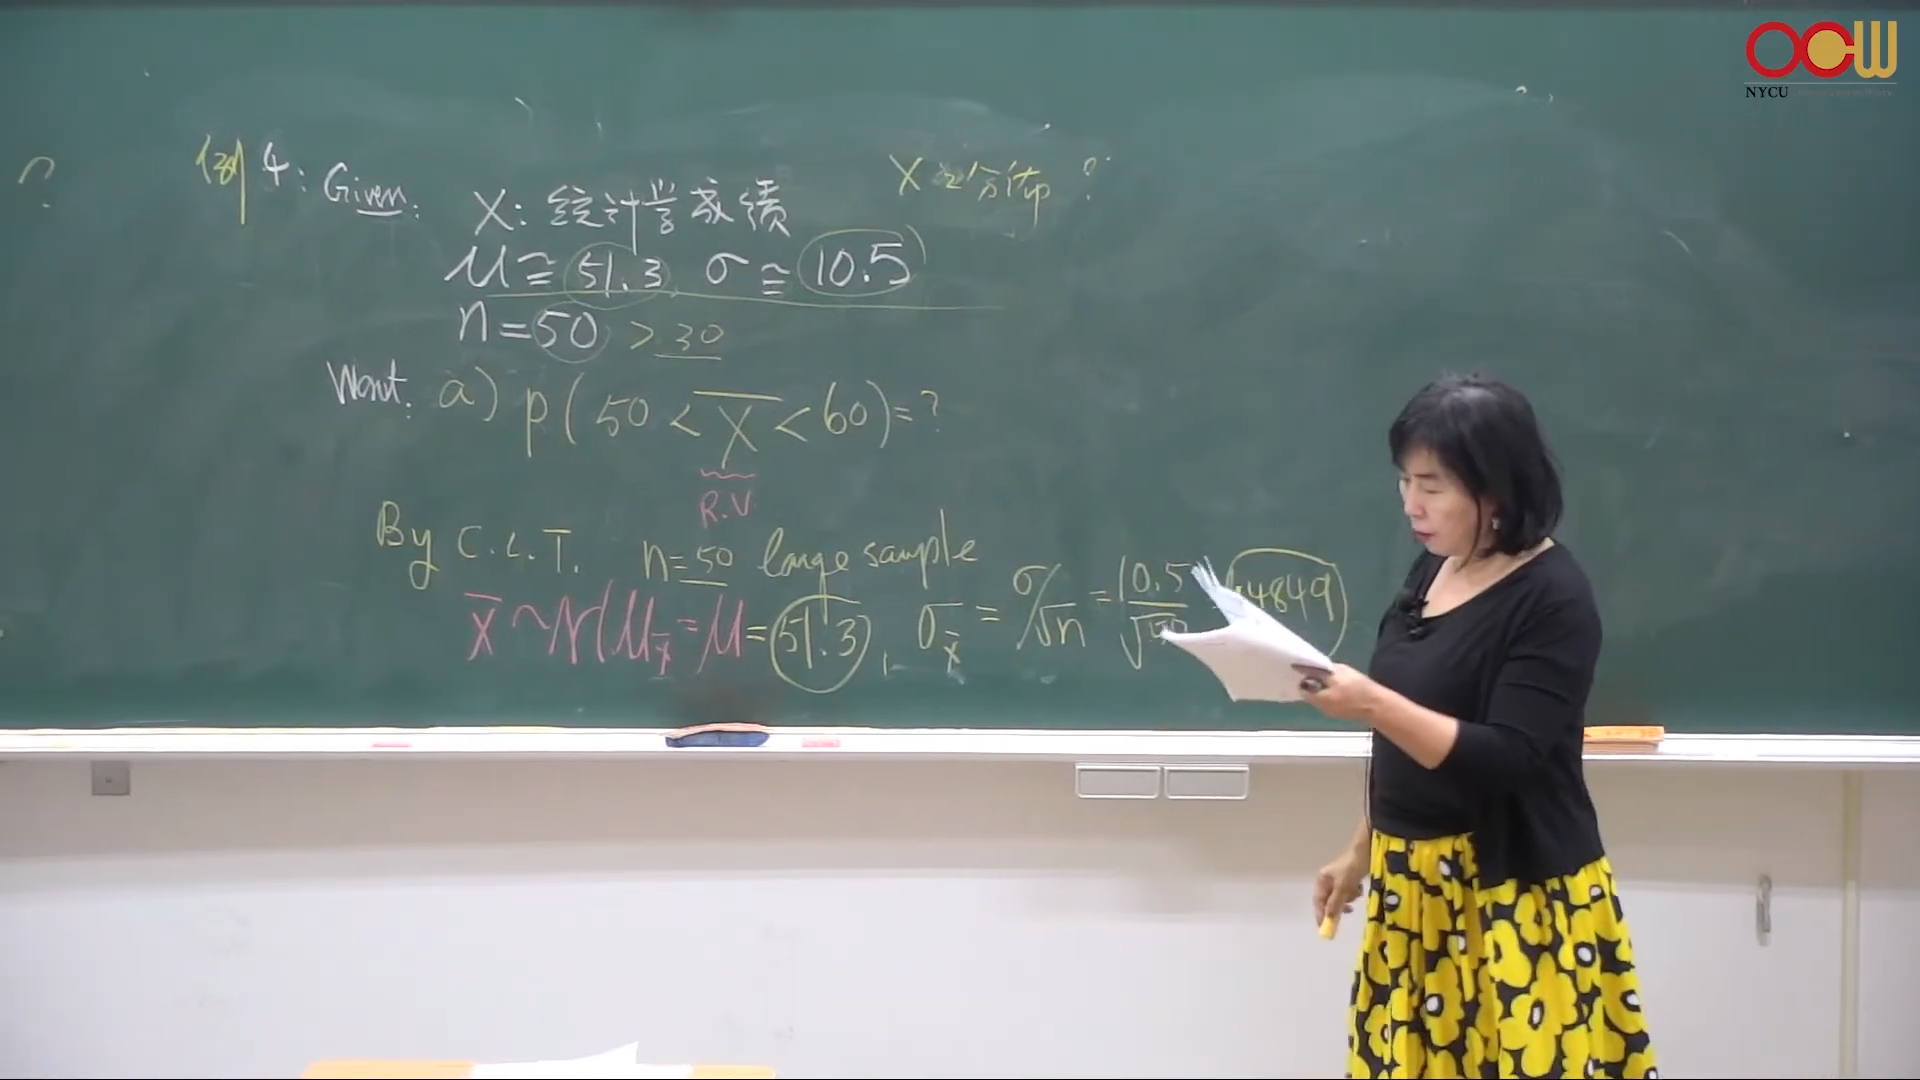 OCW
NYCU
?
例 4: Given: X: 統計學成績
X 之分佈?
μ ≅ 51.3 σ ≅ 10.5
n = 50 > 30
Want: a) P( 50 < X̄ < 60) = ?
R.V.
By C.L.T. n = 50 large sample
X̄ ~ N( μx̄ = μ = 51.3, σx̄ = σ/√n = 10.5/√50 4849